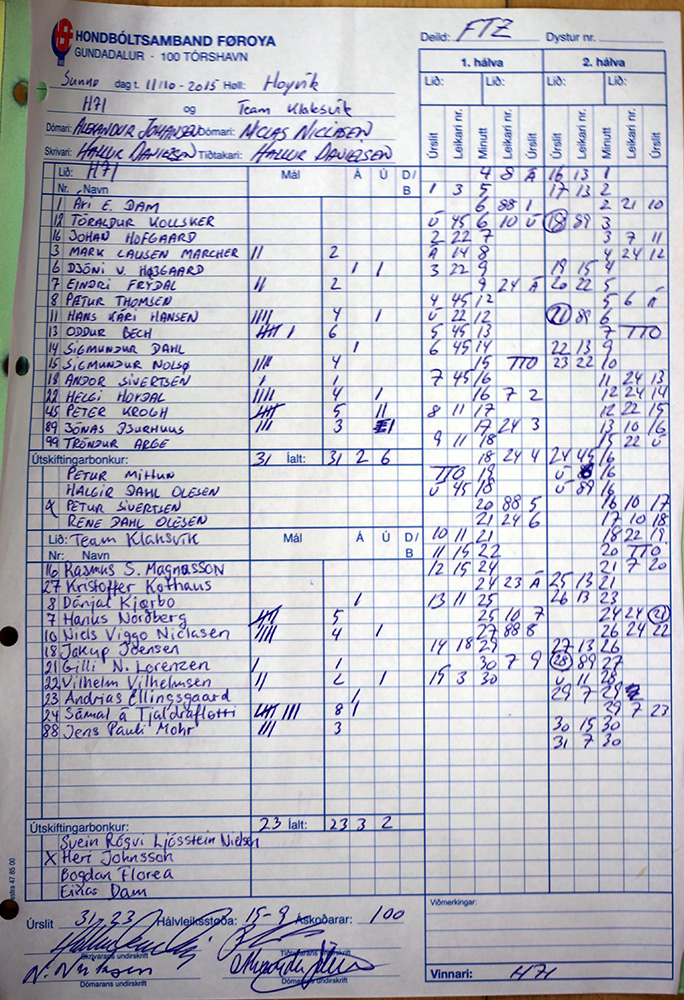 HONDBÓLTSAMBAND FØROYA
GUNDADALUR - 100 TÓRSHAVN
Deild: FTZ Dystur nr.
Sunnu dag t. 11/10-2015 Høll: Hoyvík
H71 og Team Klaksvík
Dómari: ALEXANDUR JOHANSEN Dómari: NICLAS NICLASEN
Skrivari: HALLUR DANIELSEN Tíðtakari: HALLUR DANIELSEN
1. hálva 2. hálva
Lið: Lið: Lið: Lið:
Úrslit Leikari nr. Minutt Leikari nr. Úrslit Úrslit Leikari nr. Minutt Leikari nr. Úrslit
Lið: H71 Mál Á Ú D/B
Nr. Navn
1 ARI E. DAM
12 TÓRALDUR KOLLSKER
16 JOHAN HOFGAARD
3 MARK LAUSEN MARCHER II 2
6 DJÓNI V. HØJGAARD I I
7 EINDRI FRÝDAL II 2
8 PÆTUR THOMSEN
11 HANS KÁRI HANSEN IIII 4 I
13 ODDUR BECH IIIII I 6
14 SIGMUNDUR DAHL I
15 SIGMUNDUR NOLSØ IIII 4
18 ANDOR SIVERTSEN I 1
22 HELGI HOYDAL IIII 4 I
45 PETER KROGH IIIII 5 II
89 JÓNAS DJURHUUS III 3
99 TRÓNDUR ARGE
Útskiftingarbonkur: 31 Íalt: 31 2 6
PETUR MITTUN
HALGIR DAHL OLESEN
X PETUR SIVERTSEN
RENE DAHL OLESEN
Lið: Team Klaksvík Mál Á Ú D/B
Nr: Navn
16 Rasmus S. Magnusson
27 Kristoffer Kothaus
8 Dánjal Kjørbo I
7 Hanus Norðberg IIIII 5
10 Niels Viggo Niclasen IIII 4 I
18 Jákup Joensen
21 Gilli N. Lorenzen I 1
22 Vilhelm Vilhelmsen II 2 I
23 Andrias Ellingsgaard I
24 Sámal á Tjaldrafløtti IIIII III 8 I
88 Jens Pauli Mohr III 3
Útskiftingarbonkur: 23 Íalt: 23 3 2
Svein Rógvi Ljósstein Nielsen
X Herr Johnsson
Bogdan Florea
Eirias Dam
4 8 Á 16 13 1
1 3 5 17 13 2
6 88 1 2 21 10
Ú 45 6 10 Ú 18 89 3
2 22 7 3 7 11
Á 14 8 4 24 12
3 22 9 19 15 4
9 24 Á 20 22 5
4 45 12 5 6 Á
Ú 22 12 21 89 6
5 45 13 7 TTO
6 45 14 22 13 9
15 TTO 23 22 10
7 45 16 11 24 13
16 7 2 12 24 14
8 11 17 12 22 15
17 24 3 13 10 16
9 11 18 15 22 Ú
18 24 4 24 45 16
TTO 19
Ú 45 18 Ú 89 16
20 88 5 16 10 17
21 24 6 17 10 18
10 11 21 18 22 19
11 15 22 20 TTO
12 15 24 21 7 20
24 23 Á 25 13 21
13 11 25 26 13 23
25 10 7 24 24 21
27 88 8 26 24 22
14 18 29 27 13 26
30 7 9 28 89 27
15 3 30 Ú 11 28
29 7 29
29 7 23
30 15 30
31 7 30
Úrslit 31-23 Hálvleiksstøða: 15-9 Áskoðarar: 100
Skrivarans undirskrift
Dómarans undirskrift Dómarans undirskrift
Viðmerkingar:
Vinnari: H71